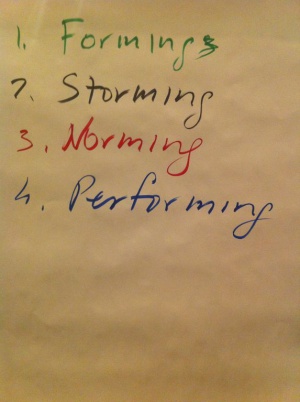 1. Forming
2. Storming
3. Norming
4. Performing